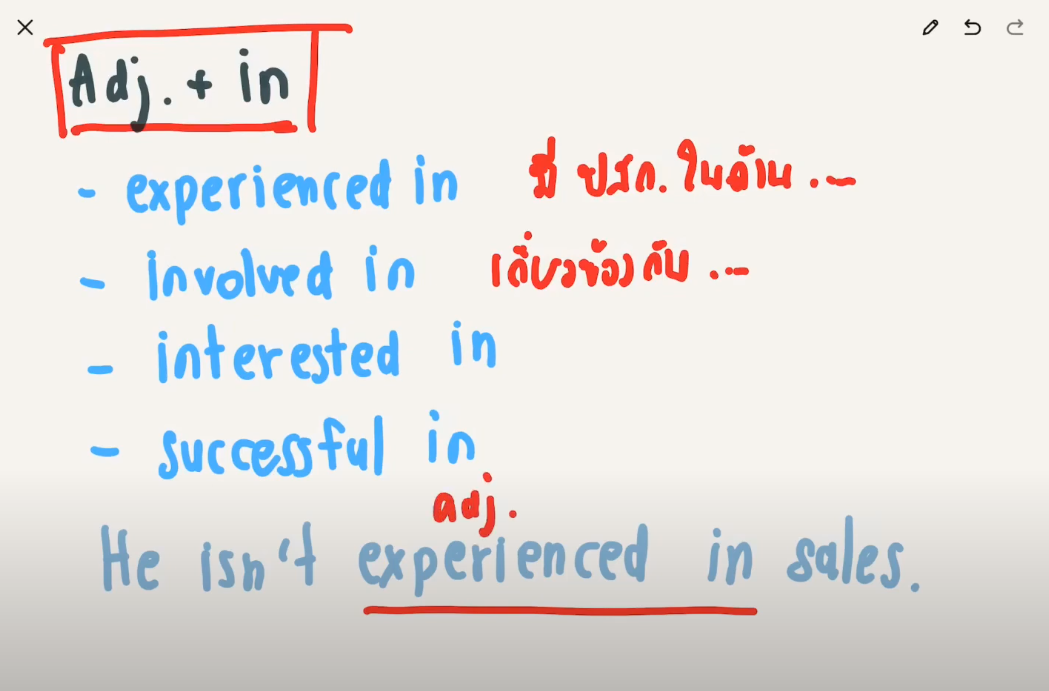 Adj. + in
- experienced in มี ปสก. ในด้าน ...
- involved in เกี่ยวข้อง กับ ...
- interested in
- successful in
adj.
He isn't experienced in sales.